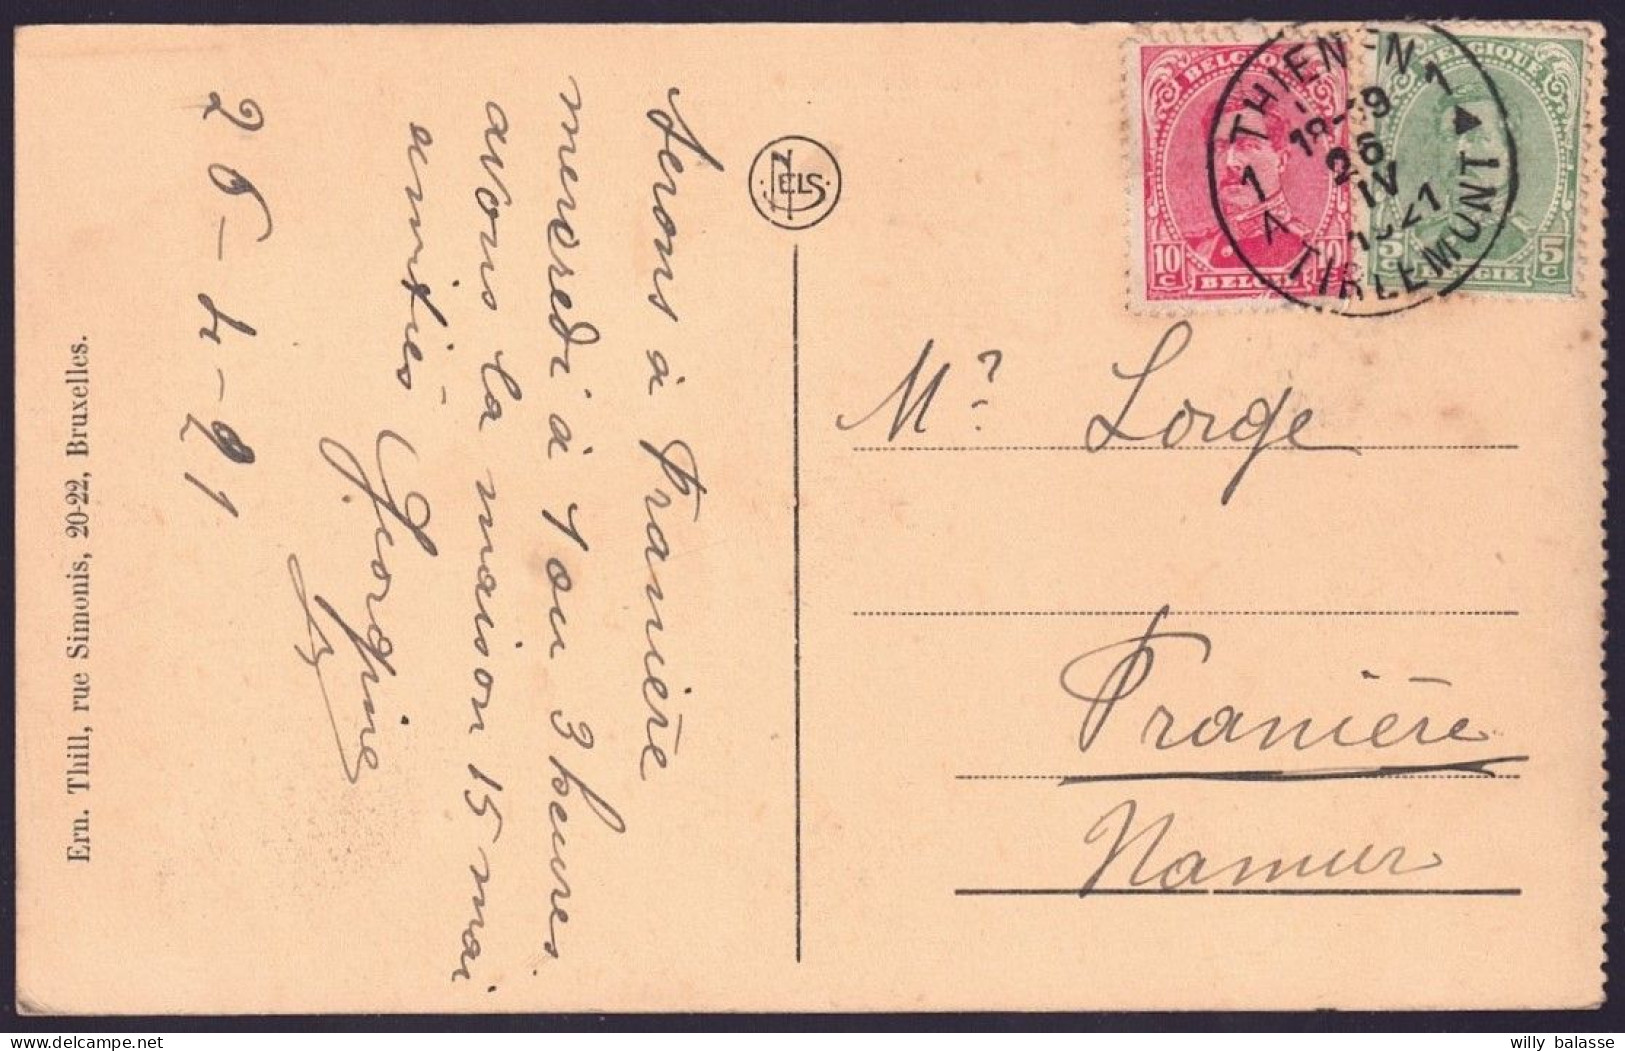 Serons à Franière
mercredi à 1 ou 3 heures.
avons la maison 15 mai
amitiés Georgine
26-4-21
Ern. Thill, rue Simonis, 20-22, Bruxelles.
NELS
BELGIQUE
10 c 10
BELGIE
BELGIQUE
5 c 5 c
BELGIE
1 THIENEN 1
18-19
26
IV
1921
A TIRLEMONT
Mr Lorge
Franière
Namur
willy balasse